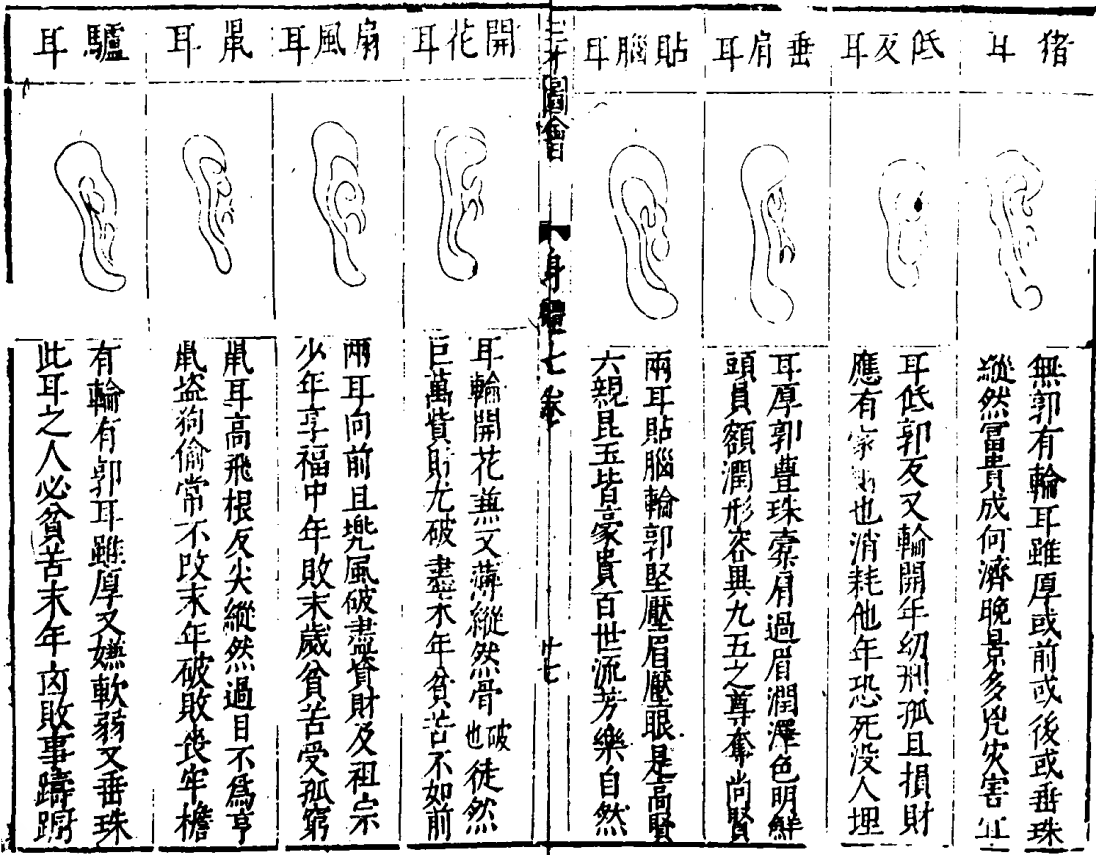 猪耳
無郭有輪耳雖厚或前或後或垂珠
縱然富貴成何濟晚景多兇災害宜
低反耳
耳低郭反又輪開年幼刑孤且損財
應有家也消耗他年恐死没人埋
垂肩耳
耳厚郭豊珠埀肩過眉潤澤色明鮮
頭員額濶形容異九五之尊奪尚賢
貼腦耳
兩耳貼腦輪郭堅壓眉壓眼是高賢
六親昆玉皆豪貴百世流芳樂自然
三才圖會
身體七卷
廿七
開花耳
耳輪開花兼又薄縱然骨破也徒然
巨萬貲財尤破盡末年貧苦不如前
扇風耳
兩耳向前且兜風破盡資財及祖宗
少年享福中年敗末歲貧苦受孤窮
鼠耳
鼠耳高飛根反尖縱然過目不爲亨
鼠盗狗偷常不改末年破敗丧牢檐
驢耳
有輪有郭耳雖厚又嫌軟弱又垂珠
此耳之人必貧苦末年凶敗事躊蹰